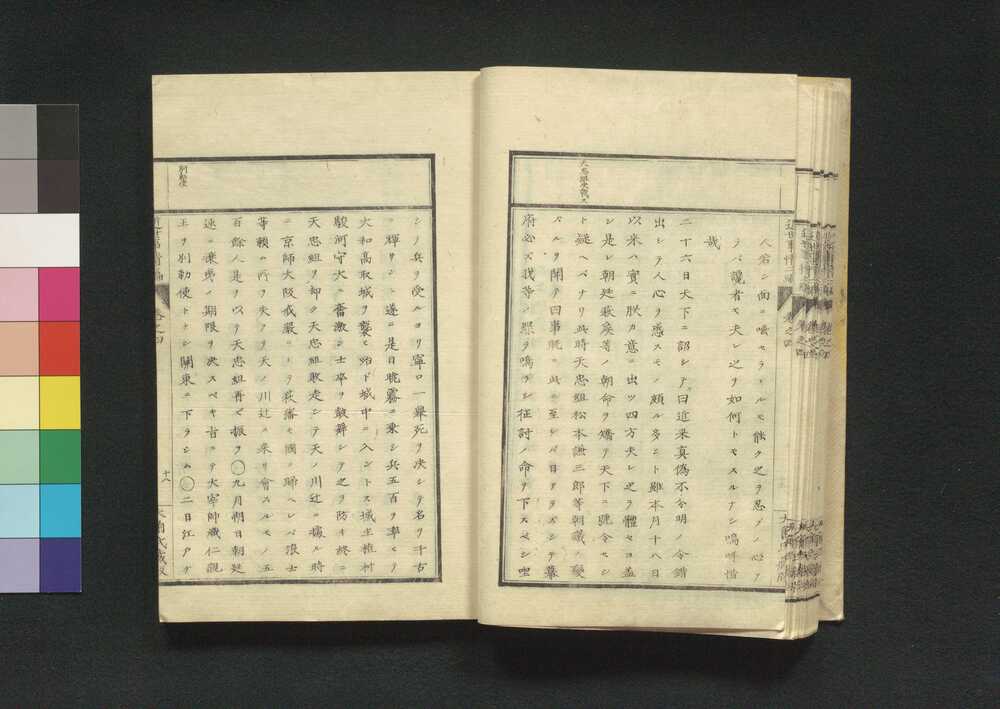 人若シ面ニ唾セラルヽモ能ク之ヲ忍ブノ心ヲ
ラバ讒者モ夫レ之ヲ如何トモスルナシ嗚呼惜
哉
二十六日天下ニ詔シテ曰近来真偽不分明ノ令錯
出シテ人心ヲ惑スモノ頗ル多シト雖本月十八日
以来ハ實ニ朕カ意ニ出ツ四方夫レ之ヲ體セヨ蓋
シ是レ朝廷萩矦等ノ朝命ヲ矯ヲ天下ニ號令セシ
ト疑ヘバナリ此時天忠組松本謙三郎等朝議ノ變
スルヲ聞テ曰事既ニ此ニ至レバ日アラズシテ幕
府必ズ我等ノ罪ヲ鳴ラシ征討ノ命ヲ下スベシ坐
シテ兵ヲ受ルヨリ寧ロ一舉死ヲ决シテ名ヲ千古
ニ輝サント遂ニ是日暁霧ニ乗シ兵五百ヲ率ヒテ
大和高取城ヲ襲ヒ殆ド城中ニ入ントス城主植村
駿河守大ニ奮激シ士卒ヲ鼓舞シテ之ヲ防キ終ニ
天忠組ヲ却ク天忠組敗走シテ天ノ川辻ニ據ル時
ニ京師大阪戒嚴ニシテ萩藩モ國ニ歸ヘレバ浪士
等頼ム所ヲ失ヲ天ノ川辻ニ来リ會スルモノ五
百餘人是ヲ以テ天忠組再ビ振フ○九月朔日朝廷
速ニ攘夷ノ期限ヲ决スベキ旨ヲ大宰帥熾仁親
王ヲ別勅使トナシ關東ニ下ラシム○二日江戸ヲ
別勅使
十八